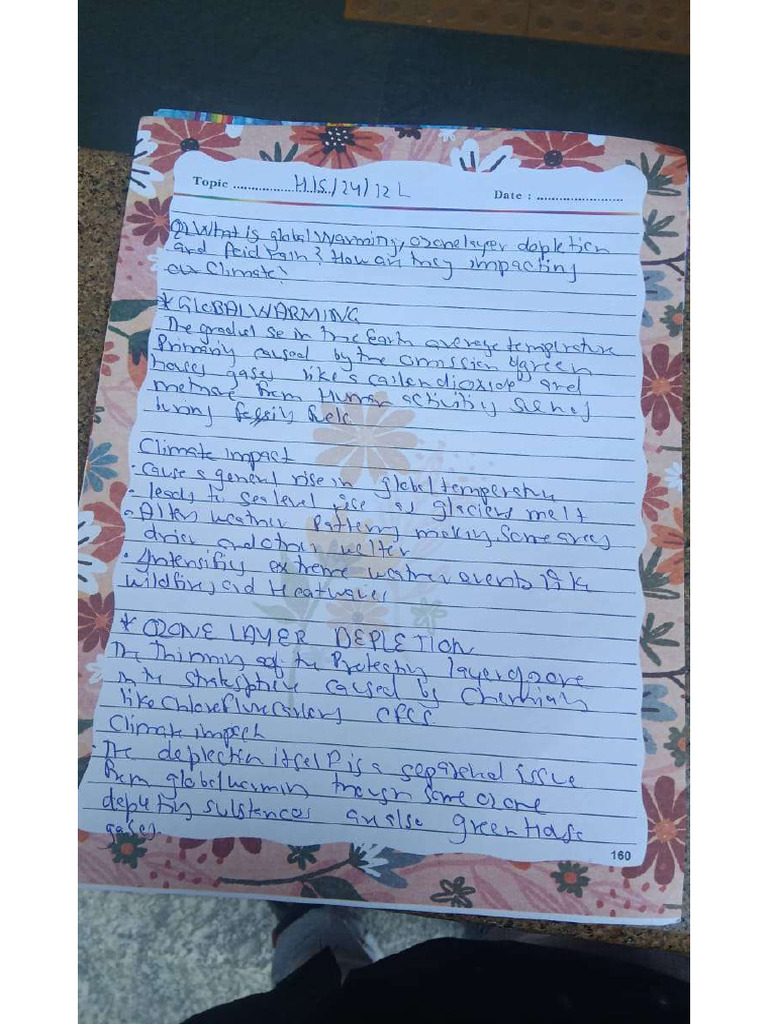 Topic .................... H/S/24/12 L
Date : ........................
Q) What is global warming, ozone layer depletion
and Acid rain? How are they impacting
our Climate?
* GLOBAL WARMING
The gradul se in the Earth average temperature
Primarily caused by the omission of green
houses gases like s carbon dioxide and
methane from Human activity
burning fossils fuels
Climate impact
· Cause a general rise in global temperature
· leads to sea level rise as glaciers melt
· Alters weather patterns making some areas
drier and other wetter
· Intensifies extreme weather events like
wildfires and Heatwaves
* OZONE LAYER DEPLETION
The Thinning of the Protecting layer of ozone
in the caused by Chemicals
like Chloro Fluro Carbons CFCS
Climate impact
· The deplection itself is a separated issue
from global warmin through some ozone
depleting substances are also green House
gases.
160